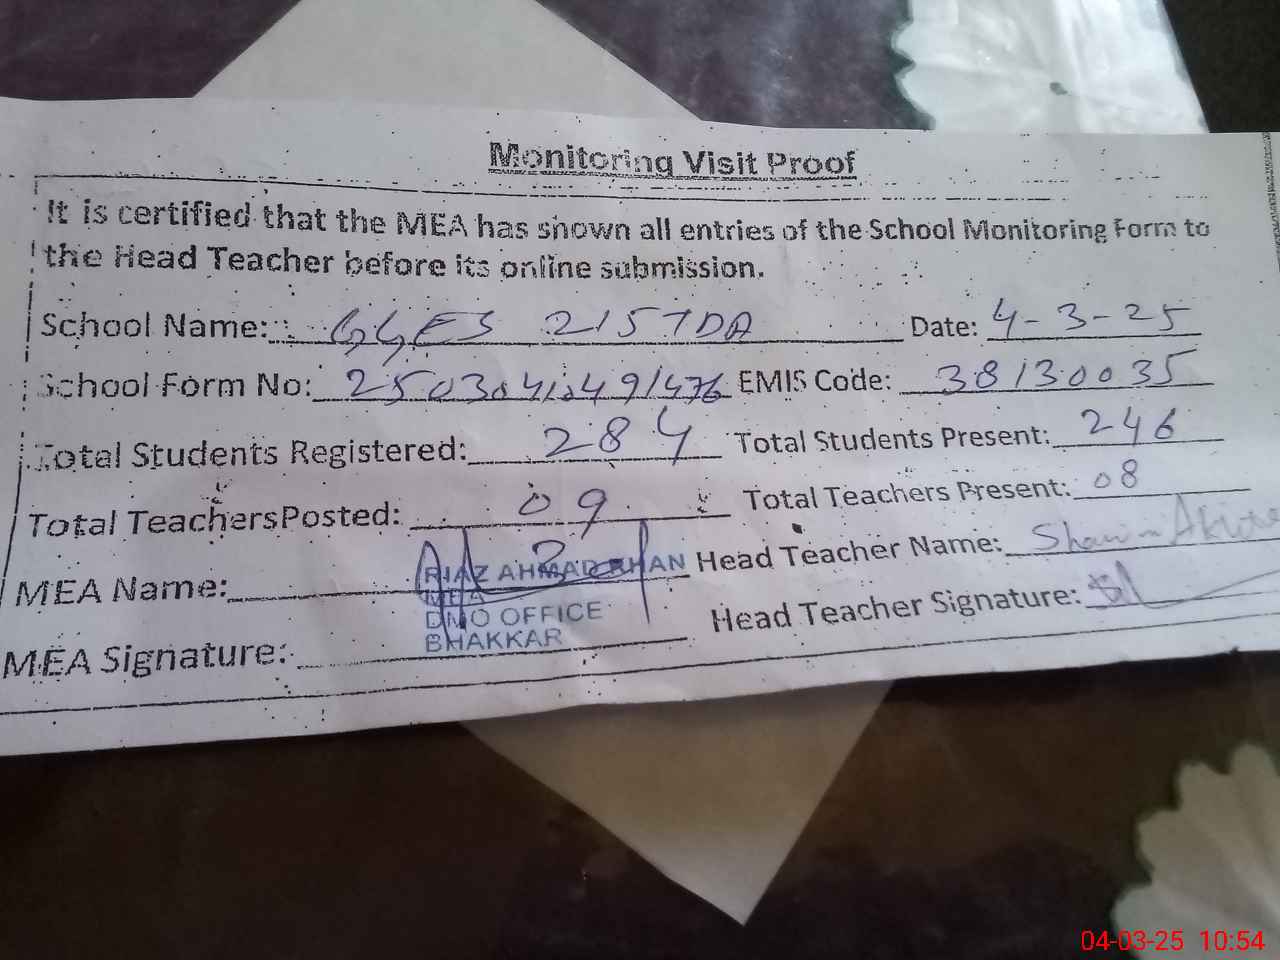 Monitoring Visit Proof
It is certified that the MEA has shown all entries of the School Monitoring Form to
the Head Teacher before its online submission.
School Name: GGES 215 TDA Date: 4-3-25
School Form No: EMIS Code: 38130035
Total Students Registered: 284 Total Students Present: 246
Total Teachers Posted: 09 Total Teachers Present: 08
MEA Name: RIAZ AHMAD KHAN Head Teacher Name:
MEA
DMO OFFICE Head Teacher Signature:
MEA Signature: BHAKKAR
04-03-25 10:54